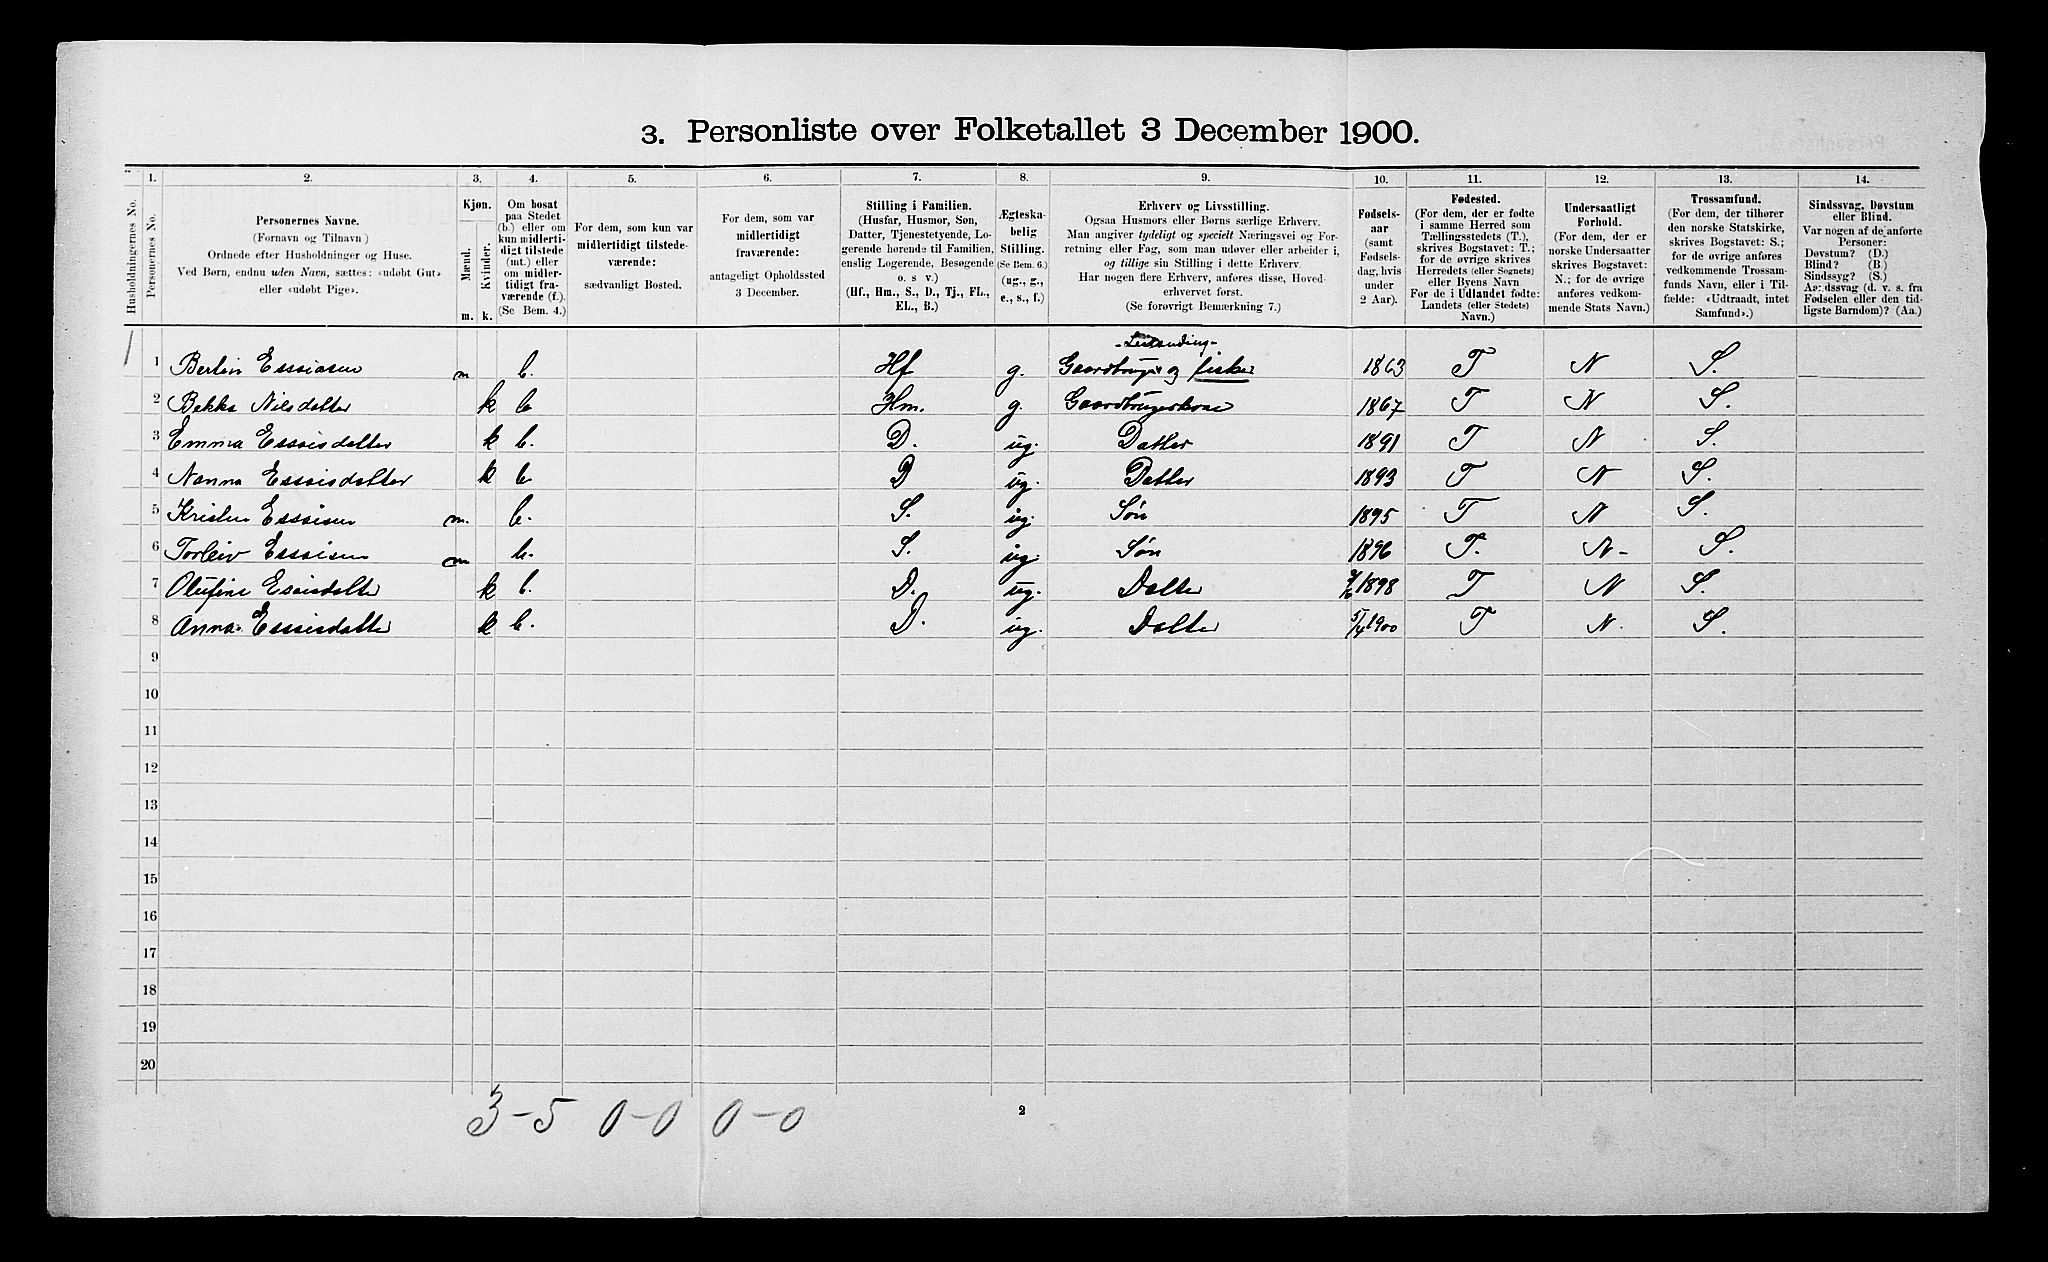 3. Personliste over Folketallet 3 December 1900.
Husholdningernes No.
1. 2. 3. 4. 5. 6. 7. 8. 9. 10. 11. 12. 13. 14.
Personernes No.
Personernes Navne.
(Fornavn og Tilnavn)
Ordnede efter Husholdninger og Huse.
Ved Børn, endnu uden Navn, sættes: «udøbt Gut»
eller «udøbt Pige».
Kjøn.
Mænd.
Kvinder.
m. k.
Om bosat
paa Stedet
(b.) eller om
kun midlerti-
digt tilstede
(mt.) eller
om midler-
tidigt fra-
værende (f.).
(Se Bem. 4.)
For dem, som kun var
midlertidigt tilstede-
værende:
sædvanligt Bosted.
For dem, som var
midlertidigt
fraværende:
antageligt Opholdssted
3 December.
Stilling i Familien.
(Husfar, Husmor, Søn,
Datter, Tjenestetyende, Lo-
gerende hørende til Familien,
enslig Logerende, Besøgende
o. s v.)
(Hf., Hm., S., D., Tj., FL.,
EL., B.)
Ægteska-
belig
Stilling.
(Se Bem. 6.)
(ug., g.,
e., s., f.)
Erhverv og Livsstilling.
Ogsaa Husmors eller Børns særlige Erhverv.
Man angiver tydeligt og specielt Næringsvei og For-
retning eller Fag, som man udøver eller arbeider i,
og tillige sin Stilling i dette Erhverv.
Har nogen flere Erhverv, anføres disse, Hoved-
erhvervet først.
(Se forøvrigt Bemærkning 7.)
Fødsels-
aar
(samt
Fødsels-
dag, hvis
under
2 Aar).
Fødested.
(For dem, der er fødte
i samme Herred som
Tællingsstedets (T.),
skrives Bogstavet: T.;
for de øvrige skrives
Herredets (eller Sognets)
eller Byens Navn
For de i Udlandet fødte:
Landets (eller Stedets)
Navn.)
Undersaatligt
Forhold.
(For dem, der er
norske Undersaatter
skrives Bogstavet:
N.; for de øvrige
anføres vedkom-
mende Stats Navn.)
Trossamfund.
(For dem, der tilhører
den norske Statskirke,
skrives Bogstavet: S.;
for de øvrige anføres
vedkommende Trossam-
funds Navn, eller i Til-
fælde: «Udtraadt, intet
Samfund».)
Sindssvag, Døvstum
eller Blind.
Var nogen af de anførte
Personer:
Døvstum? (D.)
Blind? (B.)
Sindssyg? (S.)
Aandssvag (d. v. s. fra
Fødselen eller den tid-
ligste Barndom)? (Aa.)
1 1 Bertin Essaiasen m b. Hf g. Gaardbruger og fisker 1863 T N S.
2 Bekka Nilsdatter k b Hm. g. Gaardbrugerkone 1867 T N S.
3 Emma Essaisdatter k b. D. ug. Datter 1891 T N S.
4 Nanna Essaisdatter k b D ug. Datter 1893 T N S.
5 Kristen Essaisen m. b. S. ug. Søn 1895 T N S.
6 Torleiv Essaisen m b. S. ug. Søn 1896 T. N- S.
7 Olufine Esaisdatte k b. D. ug. Datter 1898 T N S.
8 Anna Essaisdatter k b. D. ug. Datter 5/4 1900 T N. S.
9
10
11
12
13
14
15
16
17
18
19
20
3-5 0-0 0-0
2